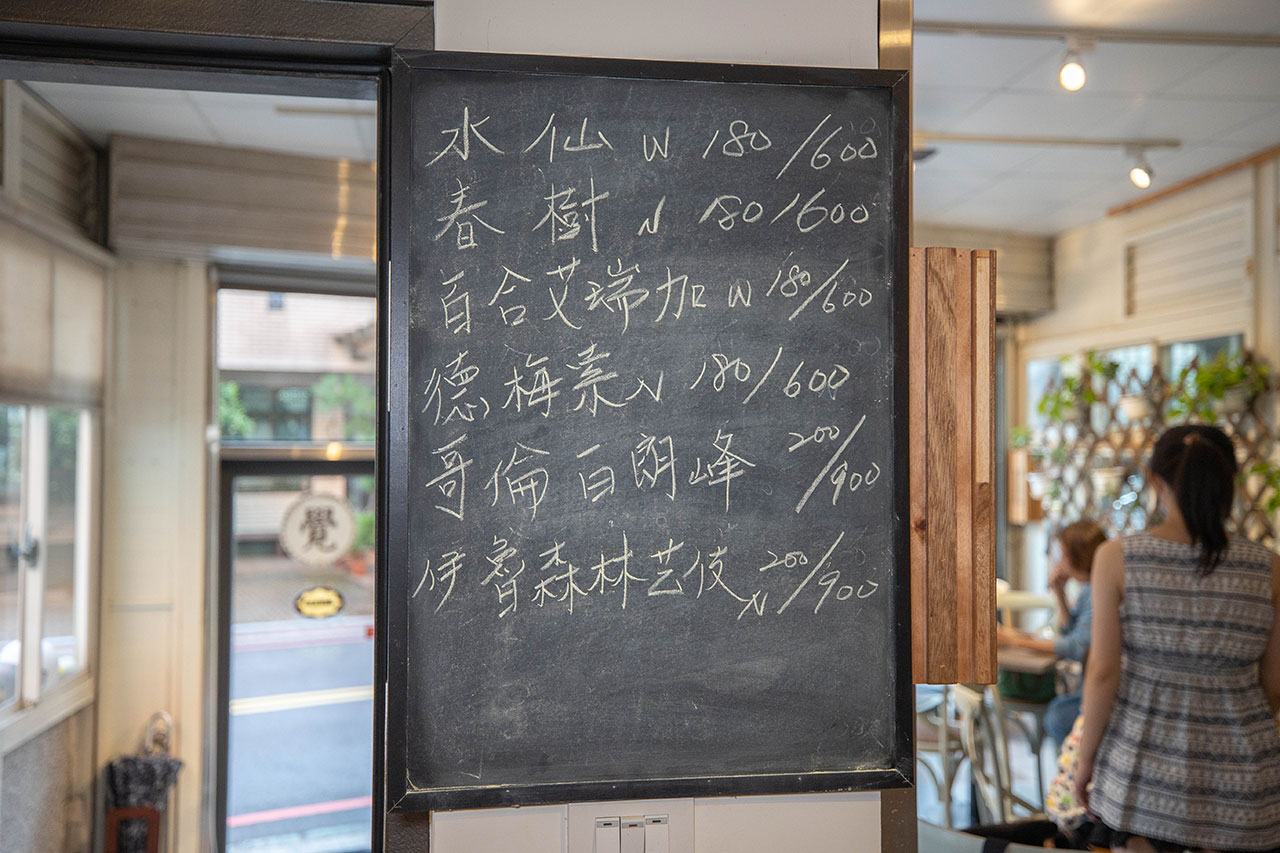 水仙 W 180/600
春樹 N 180/600
百合艾瑞加 W 180/600
德梅索 N 180/600
哥倫百朗峰 200/900
伊魯森林芸伎 N 200/900
覺